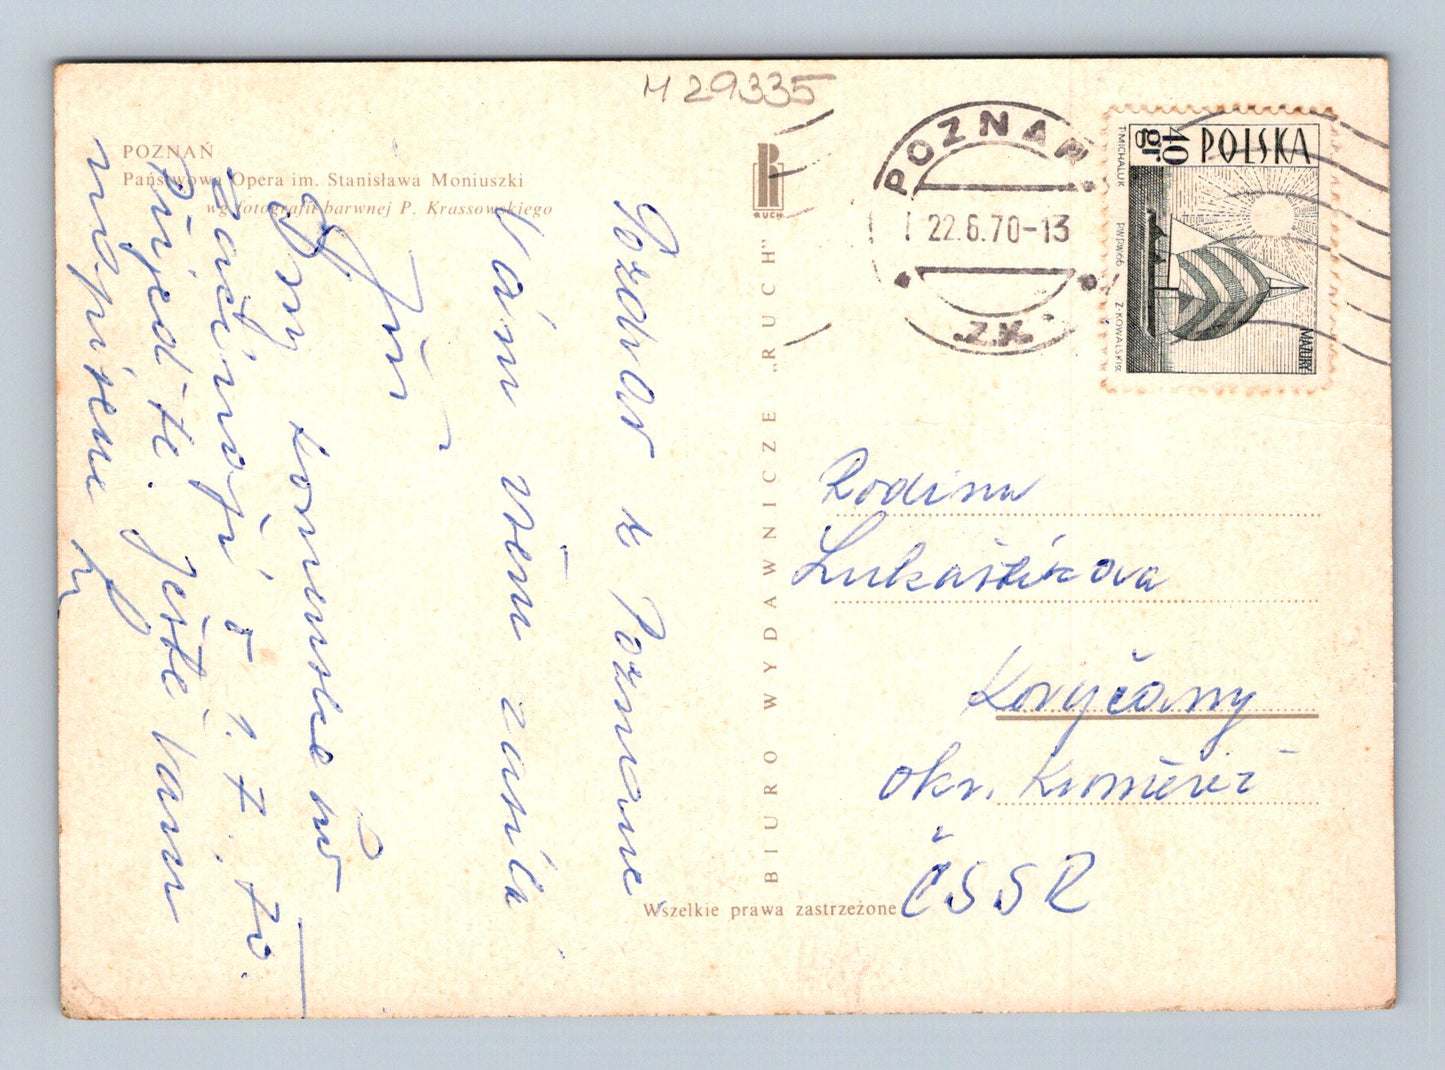 M 29335
POZNAŃ
Państwowa Opera im. Stanisława Moniuszki
wg fotografii barwnej P. Krassowskiego
RUCH
BIURO WYDAWNICZE „RUCH"
Wszelkie prawa zastrzeżone
POZNAŃ
22.6.70-13
Z.K.
POLSKA
40 gr
MAZURY
T. MICHALUK
PWPW 66
Z. KOWALSKI sc.
Pozdrav z Poznaně
Vám všem zasílá
Jiří
Dny
začínají 1. 7. 70.
Přijeďte. Ještě Vám
napíšeme
Rodina
Lukaštíkova
Koryčany
okr. Kroměříž
ČSSR